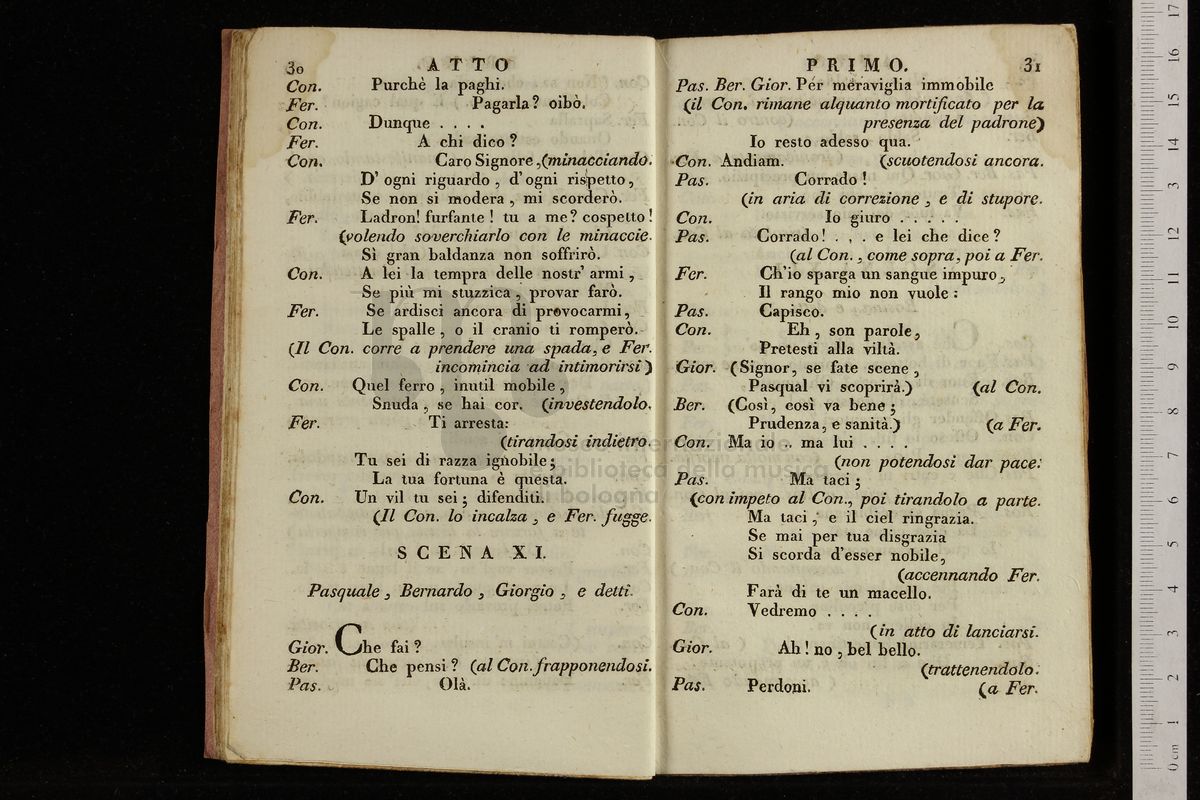 30 ATTO
Con. Purchè la paghi.
Fer. Pagarla? oibò.
Con. Dunque . . . .
Fer. A chi dico?
Con. Caro Signore, (minacciando.
D' ogni riguardo, d' ogni rispetto,
Se non si modera, mi scorderò.
Fer. Ladron! furfante! tu a me? cospetto!
(volendo soverchiarlo con le minaccie.
Sì gran baldanza non soffrirò.
Con. A lei la tempra delle nostr' armi,
Se più mi stuzzica, provar farò.
Fer. Se ardisci ancora di provocarmi,
Le spalle, o il cranio ti romperò.
(Il Con. corre a prendere una spada, e Fer.
incomincia ad intimorirsi)
Con. Quel ferro, inutil mobile,
Snuda, se hai cor. (investendolo.
Fer. Ti arresta:
(tirandosi indietro.
Tu sei di razza ignobile;
La tua fortuna è questa.
Con. Un vil tu sei; difenditi.
(Il Con. lo incalza, e Fer. fugge.
SCENA XI.
Pasquale, Bernardo, Giorgio, e detti.
Gior. Che fai?
Ber. Che pensi? (al Con. frapponendosi.
Pas. Olà.
PRIMO. 31
Pas. Ber. Gior. Per meraviglia immobile
(il Con. rimane alquanto mortificato per la
presenza del padrone)
Io resto adesso qua.
Con. Andiam. (scuotendosi ancora.
Pas. Corrado!
(in aria di correzione, e di stupore.
Con. Io giuro . . . . .
Pas. Corrado! . , . e lei che dice?
(al Con., come sopra, poi a Fer.
Fer. Ch'io sparga un sangue impuro,
Il rango mio non vuole:
Pas. Capisco.
Con. Eh, son parole,
Pretesti alla viltà.
Gior. (Signor, se fate scene,
Pasqual vi scoprirà.) (al Con.
Ber. (Così, così va bene;
Prudenza, e sanità.) (a Fer.
Con. Ma io .. ma lui . . . .
(non potendosi dar pace.
Pas. Ma taci;
(con impeto al Con., poi tirandolo a parte.
Ma taci, e il ciel ringrazia.
Se mai per tua disgrazia
Si scorda d'esser nobile,
(accennando Fer.
Farà di te un macello.
Con. Vedremo . . . .
(in atto di lanciarsi.
Gior. Ah! no, bel bello.
(trattenendolo.
Pas. Perdoni. (a Fer.
biblioteca della musica
bologna
0 cm 1 2 3 4 5 6 7 8 9 10 11 12 13 14 15 16 17